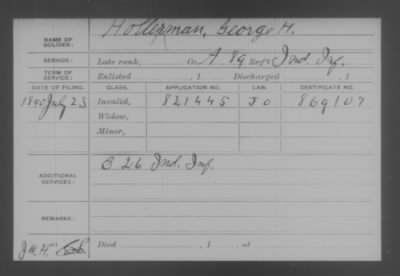 Hollerman, George H.
NAME OF SOLDIER:
SERVICE: Late rank, Co. A. 89 Reg't Ind. Inf.
TERM OF SERVICE: Enlisted , 1 Discharged , 1
DATE OF FILING. CLASS. APPLICATION NO. LAW. CERTIFICATE NO.
1890 July 23 Invalid, 821445 J O 869107
Widow,
Minor,
ADDITIONAL SERVICES: B 26 Ind. Inf.
REMARKS:
Died , 1 , at